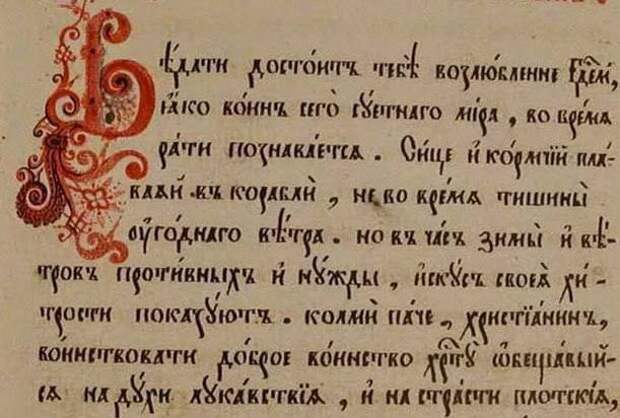 Вѣ́дати досто́итъ тебѣ̀ возлю́бленне
ꙗ҆́ко во́инъ сегѡ̀ сꙋ́етнаго мі́ра, во вре́мѧ
ра́ти познава́етсѧ. Си́це и҆ ко́рмчїй пла́-
ваѧй въ кораблѝ, не во вре́мѧ тишины̀
оу҆го́днаго вѣ́тра. но въ ча́съ зимы̀ и҆ вѣ́-
тровъ проти́вныхъ и҆ нꙋ́жды, и҆скꙋ́съ своеѧ̀ хи́-
трости показꙋ́ютъ. кольмѝ па́че, христїа́нинъ,
во́инствовати до́брое во́инство хрⷭ҇тꙋ̀ ѡ҆бѣща́вый-
сѧ на дꙋ́хи лꙋка́вствїѧ, и҆ на стра́сти плотскі́ѧ,